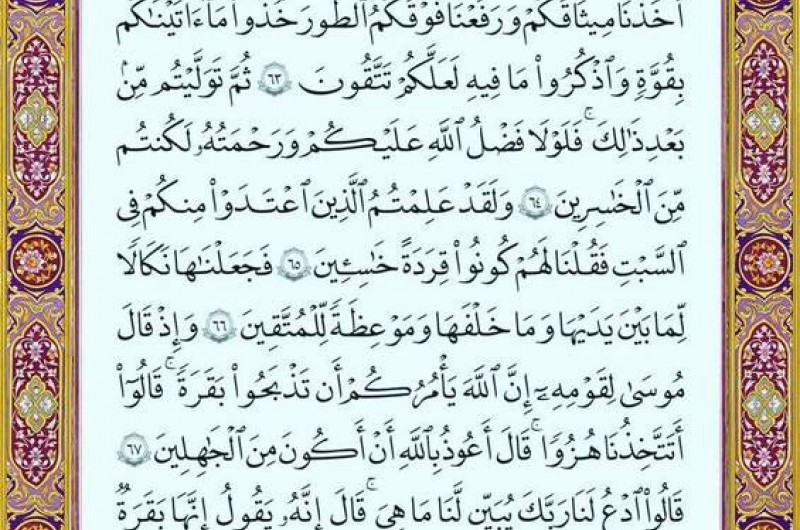 أَخَذْنَا مِيثَاقَكُمْ وَرَفَعْنَا فَوْقَكُمُ ٱلطُّورَ خُذُوا۟ مَآ ءَاتَيْنَٰكُم
بِقُوَّةٍ وَٱذْكُرُوا۟ مَا فِيهِ لَعَلَّكُمْ تَتَّقُونَ ٦٣ ثُمَّ تَوَلَّيْتُم مِّنۢ
بَعْدِ ذَٰلِكَ ۖ فَلَوْلَا فَضْلُ ٱللَّهِ عَلَيْكُمْ وَرَحْمَتُهُۥ لَكُنتُم
مِّنَ ٱلْخَٰسِرِينَ ٦٤ وَلَقَدْ عَلِمْتُمُ ٱلَّذِينَ ٱعْتَدَوْا۟ مِنكُمْ فِى
ٱلسَّبْتِ فَقُلْنَا لَهُمْ كُونُوا۟ قِرَدَةً خَٰسِـِٔينَ ٦٥ فَجَعَلْنَٰهَا نَكَٰلًا
لِّمَا بَيْنَ يَدَيْهَا وَمَا خَلْفَهَا وَمَوْعِظَةً لِّلْمُتَّقِينَ ٦٦ وَإِذْ قَالَ
مُوسَىٰ لِقَوْمِهِۦٓ إِنَّ ٱللَّهَ يَأْمُرُكُمْ أَن تَذْبَحُوا۟ بَقَرَةً ۖ قَالُوٓا۟
أَتَتَّخِذُنَا هُزُوًا ۖ قَالَ أَعُوذُ بِٱللَّهِ أَنْ أَكُونَ مِنَ ٱلْجَٰهِلِينَ ٦٧
قَالُوا۟ ٱدْعُ لَنَا رَبَّكَ يُبَيِّن لَّنَا مَا هِىَ ۚ قَالَ إِنَّهُۥ يَقُولُ إِنَّهَا بَقَرَةٌ